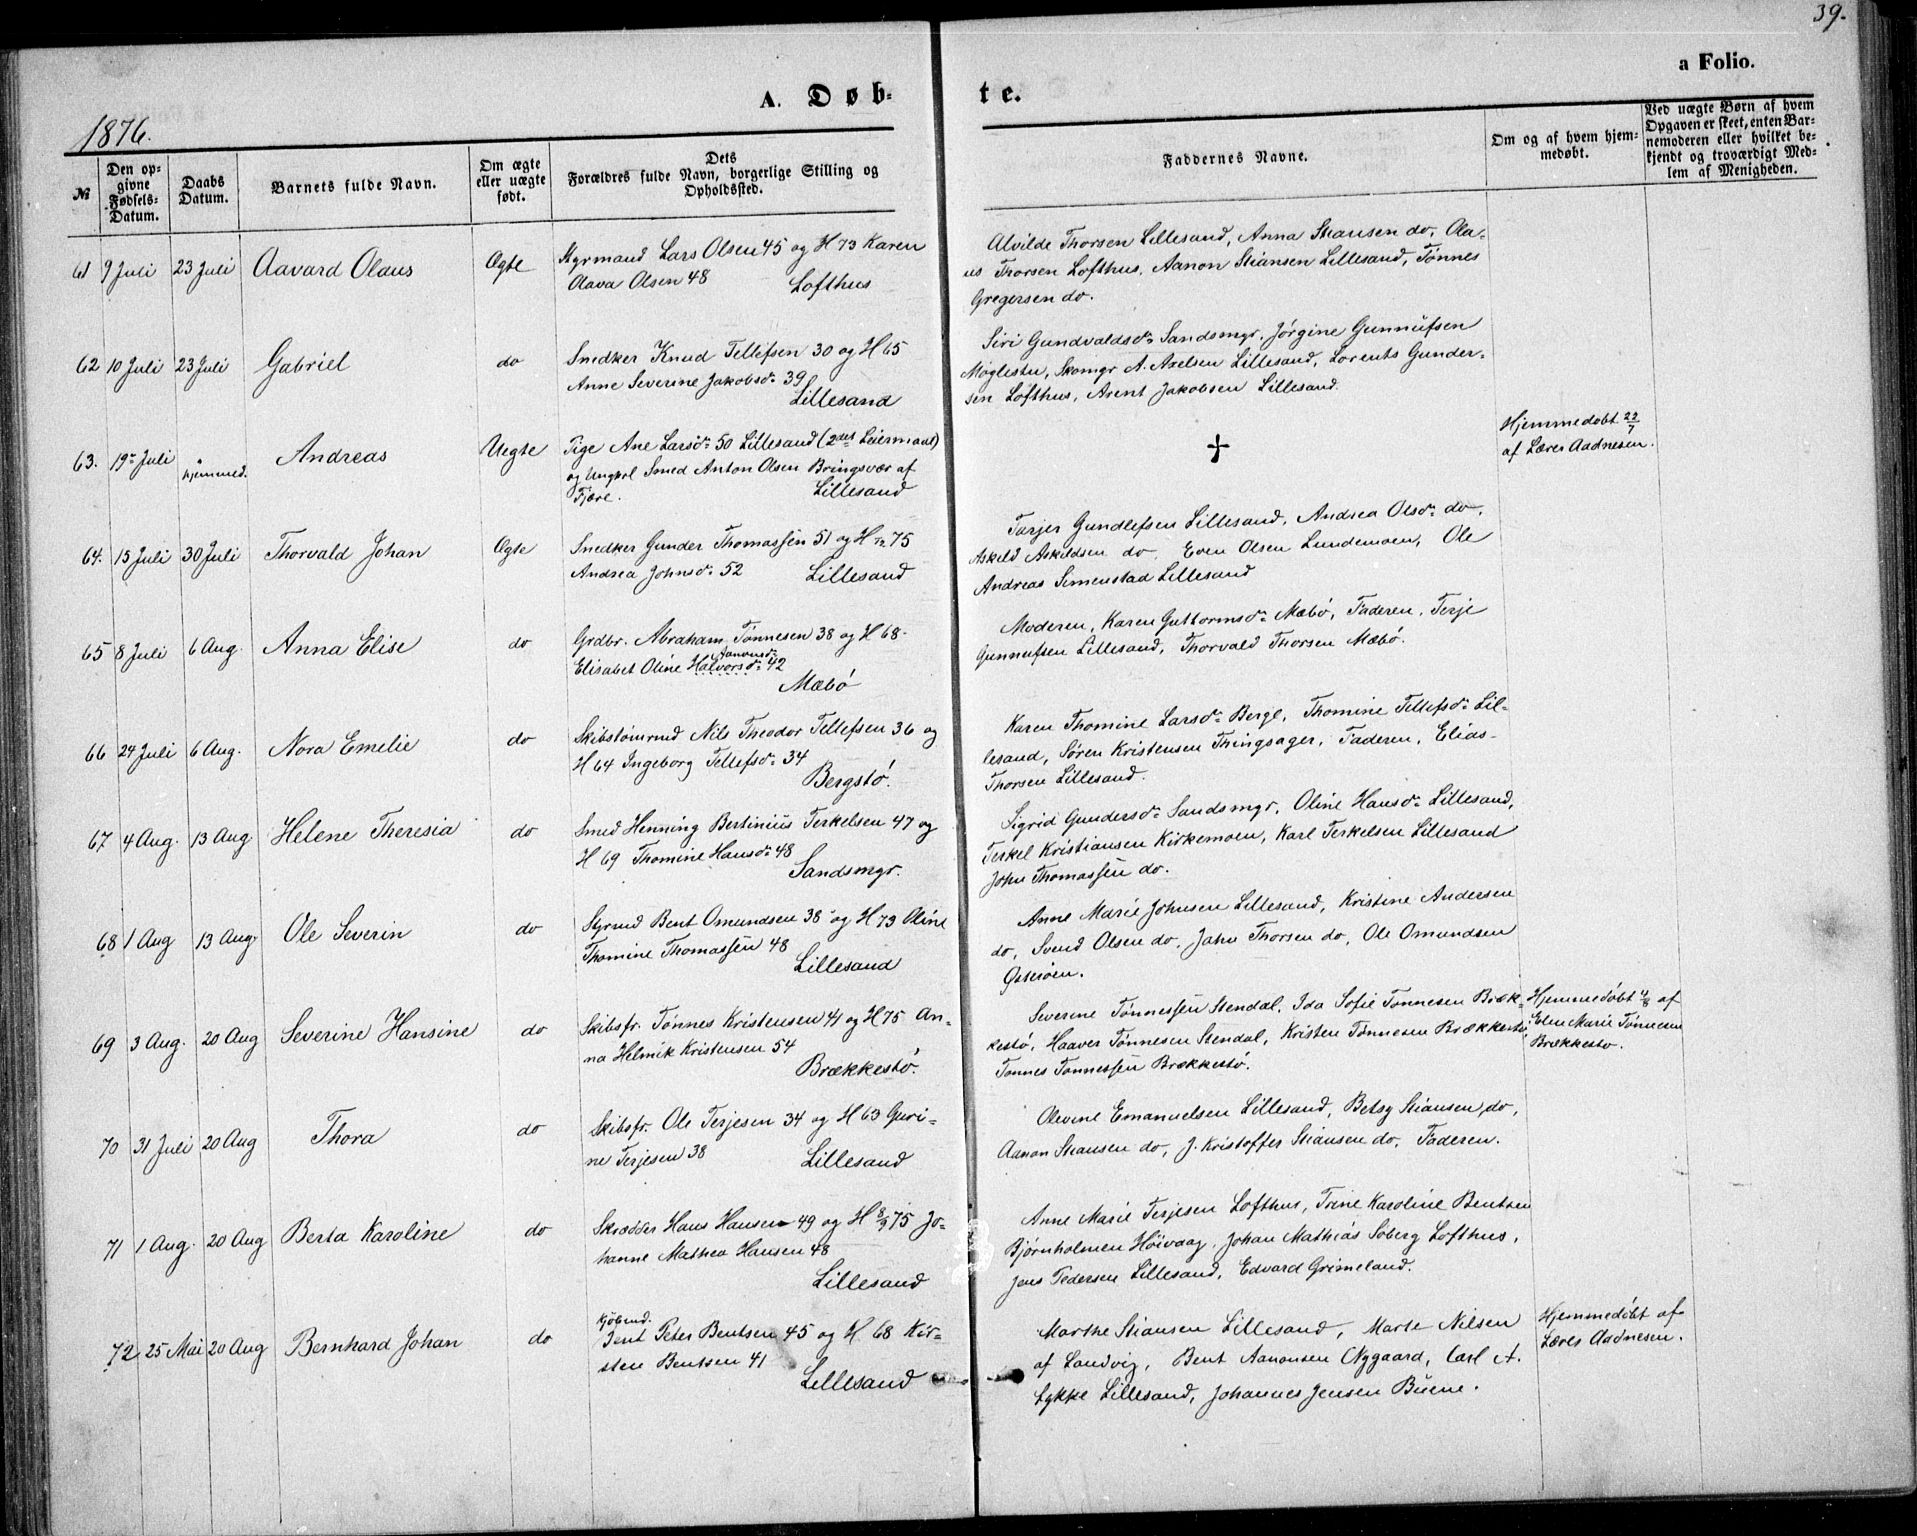 39.
a Folio.
A. Døb-
te.
1876.
№
Den op-
givne
Fødsels-
Datum.
Daabs
Datum.
Barnets fulde Navn.
Om ægte
eller uægte
født.
Dets
Forældres fulde Navn, borgerlige Stilling og
Opholdssted.
Faddernes Navne.
Om og af hvem hjem-
medøbt.
Ved uægte Børn af hvem
Opgaven er skeet, enten Bar-
nemoderen eller hvilket be-
kjendt og troværdigt Med-
lem af Menigheden.
61 9 Juli 23 Juli Aavard Olaus Ægte
Styrmand Lars Olsen 45 og H 73 Karen
Aava Olsen 48 Lofthus
Alvilde Thorsen Lillesand, Anna Stiansen do, Ola-
us Thorsen Lofthus, Aanon Stiansen Lillesand, Tønnes
Gregersen do.
62 10 Juli 23 Juli Gabriel do
Snedker Knud Tellefsen 30 og H 65
Anne Severine Jakobsd. 39
Lillesand
Siri Gundvaldsd. Sandsmgr. Jørgine Gunnufsen
Møglestu, Skomgr A. Axelsen Lillesand, Lorents Gunder-
sen Lofthus, Arent Jakobsen Lillesand.
63. 19 Juli hjemmed. Andreas Uegte
Pige Ane Larsd. 50 Lillesand (2det Leiermaal)
og Ungkrl Smed Anton Olsen Bringsvær af
Fjære. Lillesand
+
Hjemmedøbt 22/7
af Lærer Aadnesen.
64. 15 Juli 30 Juli Thorvald Johan Ægte
Snedker Gunder Thomassen 51 og H 75
Andrea Johnsd. 52 Lillesand
Tarjer Gundlefsen Lillesand, Andrea Olsd. do,
Askeld Askeldsen do, Even Olsen Lundemoen, Ole
Andreas Simenstad Lillesand
65 8 Juli 6 Aug. Anna Elise do
Grdbr. Abraham Tønnesen 38 og H 68.
Aanonsd.
Elisabet Oline Halvorsd. 42
Mæbø
Moderen, Karen Guttormsd. Mæbø, Faderen, Terje
Gunnufsen Lillesand, Thorvald Thorsen Mæbø.
66 24 Juli 6 Aug. Nora Emelie do
Skibstømrmd Nils Theodor Tellefsen 36 og
H 64 Ingeborg Tellefsd. 34
Bergstø.
Karen Thomine Larsd. Berge, Thomine Tellefsd. Lil-
lesand, Søren Kristensen Thingsager, Faderen, Elias
Thorsen Lillesand.
67 4 Aug. 13 Aug Helene Theresia do
Smed Henning Bertinius Terkelsen 47 og
H 69 Thomine Hansd. 48
Sandsmgr.
Sigrid Gundersd. Sandsmgr, Oline Hansd. Lillesand,
Terkel Kristiansen Kirkemoen, Karl Terkelsen Lillesand
John Thomassen do.
68 1 Aug 13 Aug Ole Severin do
Styrmd Bent Omundsen 38 og H 73 Oline
Thomine Thomassen 48
Lillesand
Anne Marie Johnsen Lillesand, Kristine Andersen
do, Svend Olsen do, John Thorsen do, Ole Omundsen
Østerøen.
69 3 Aug. 20 Aug Severine Hansine do
Skibsfr. Tønnes Kristensen 41 og H 75 An-
na Helmik Kristensen 54
Brækkestø.
Severine Tønnessen Stendal, Ida Sofie Tønnesen Bræk-
kestø, Haaver Tønnesen Stendal, Kristen Tønnesen Brækkestø,
Tønnes Tønnessen Brækkestø.
Hjemmedøbt 4/8 af
Elen Marie Tønnesen
Brækkestø.
70 31 Juli 20 Aug Thora do
Skibsfr. Ole Terjesen 34 og H 63 Guri-
ne Terjesen 38 Lillesand
Olevine Emanuelsen Lillesand, Betsy Stiansen do,
Aanon Stiansen do, J. Kristoffer Stiansen do, Faderen.
71 1 Aug. 20 Aug Berta Karoline do
Skrædder Hans Hansen 49 og H 75 Jo-
hanne Mathea Hansen 48
Lillesand
Anne Marie Terjesen Lofthus, Trine Karoline Bentsen
Bjørnholmen Høivaag, Johan Mathias Soberg Lofthus,
Jens Pedersen Lillesand, Edvard Grimeland.
72 25 Mai 20 Aug Bernhard Johan do
Kjøbmd.
Jent Peter Bentsen 45 og H 68 Kir-
sten Bentsen 41
Lillesand
Marthe Stiansen Lillesand, Marte Nilsen
af Landvig, Bent Aanonsen Nygaard, Carl A.
Lykke Lillesand, Johannes Jensen Buene.
Hjemmedøbt af
Lærer Aadnesen.